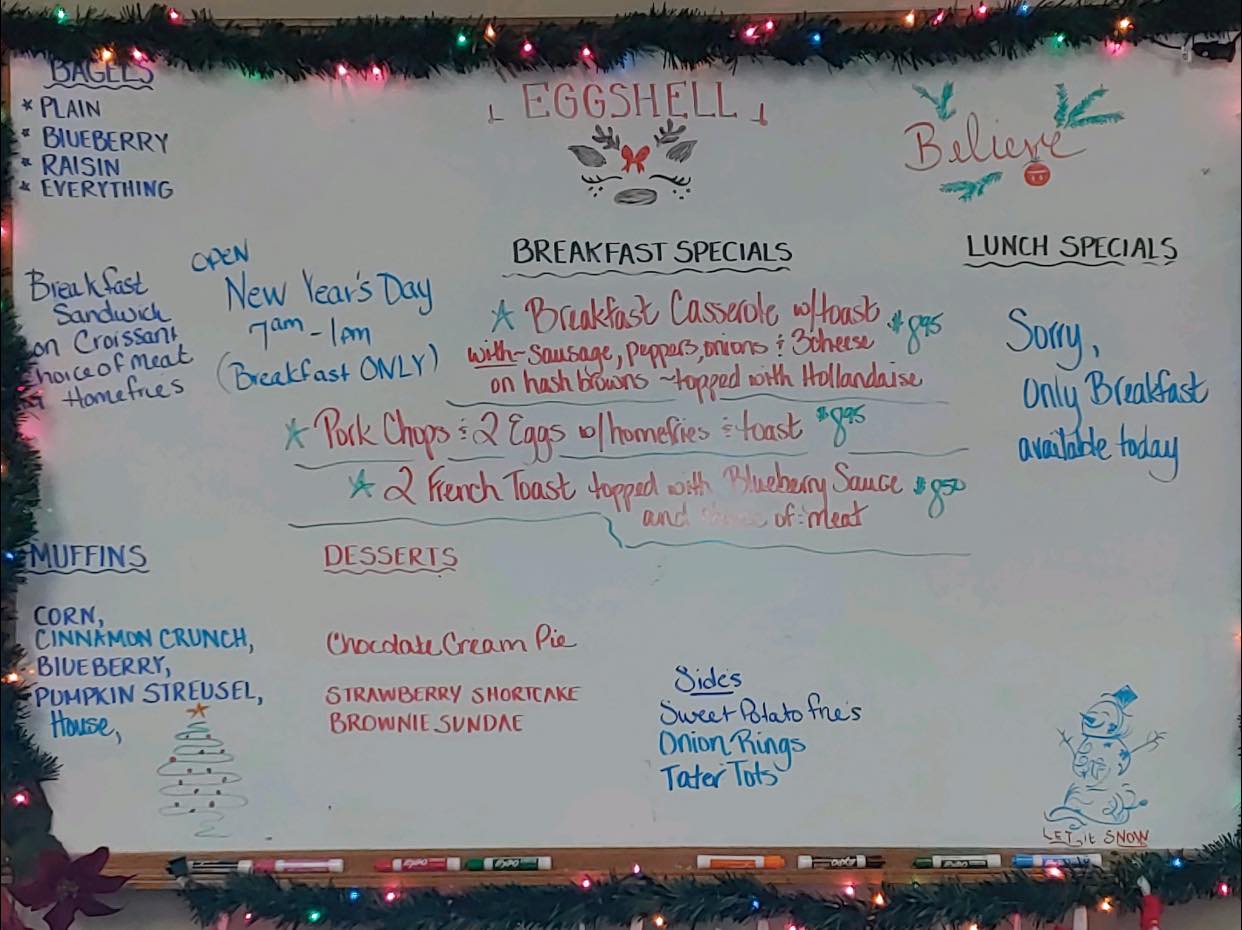 BAGELS
* PLAIN
* BLUEBERRY
* RAISIN
* EVERYTHING
EGGSHELL
Believe
Breakfast
Sandwich
on Croissant
choice of meat
Homefries
OPEN
New Year's Day
7am - 1pm
(Breakfast ONLY)
BREAKFAST SPECIALS
☆ Breakfast Casserole w/toast $8.95
with~ sausage, peppers, onions & 3cheese
on hashbrowns ~topped with Hollandaise
☆ Pork Chops & 2 Eggs w/homefries & toast $8.95
☆ 2 French Toast topped with Blueberry Sauce $8.50
and of meat
LUNCH SPECIALS
Sorry,
Only Breakfast
available today
MUFFINS
CORN,
CINNAMON CRUNCH,
BLUEBERRY,
PUMPKIN STREUSEL,
House,
DESSERTS
Chocolate Cream Pie
STRAWBERRY SHORTCAKE
BROWNIE SUNDAE
Sides
Sweet Potato fries
Onion Rings
Tater Tots
LET it SNOW